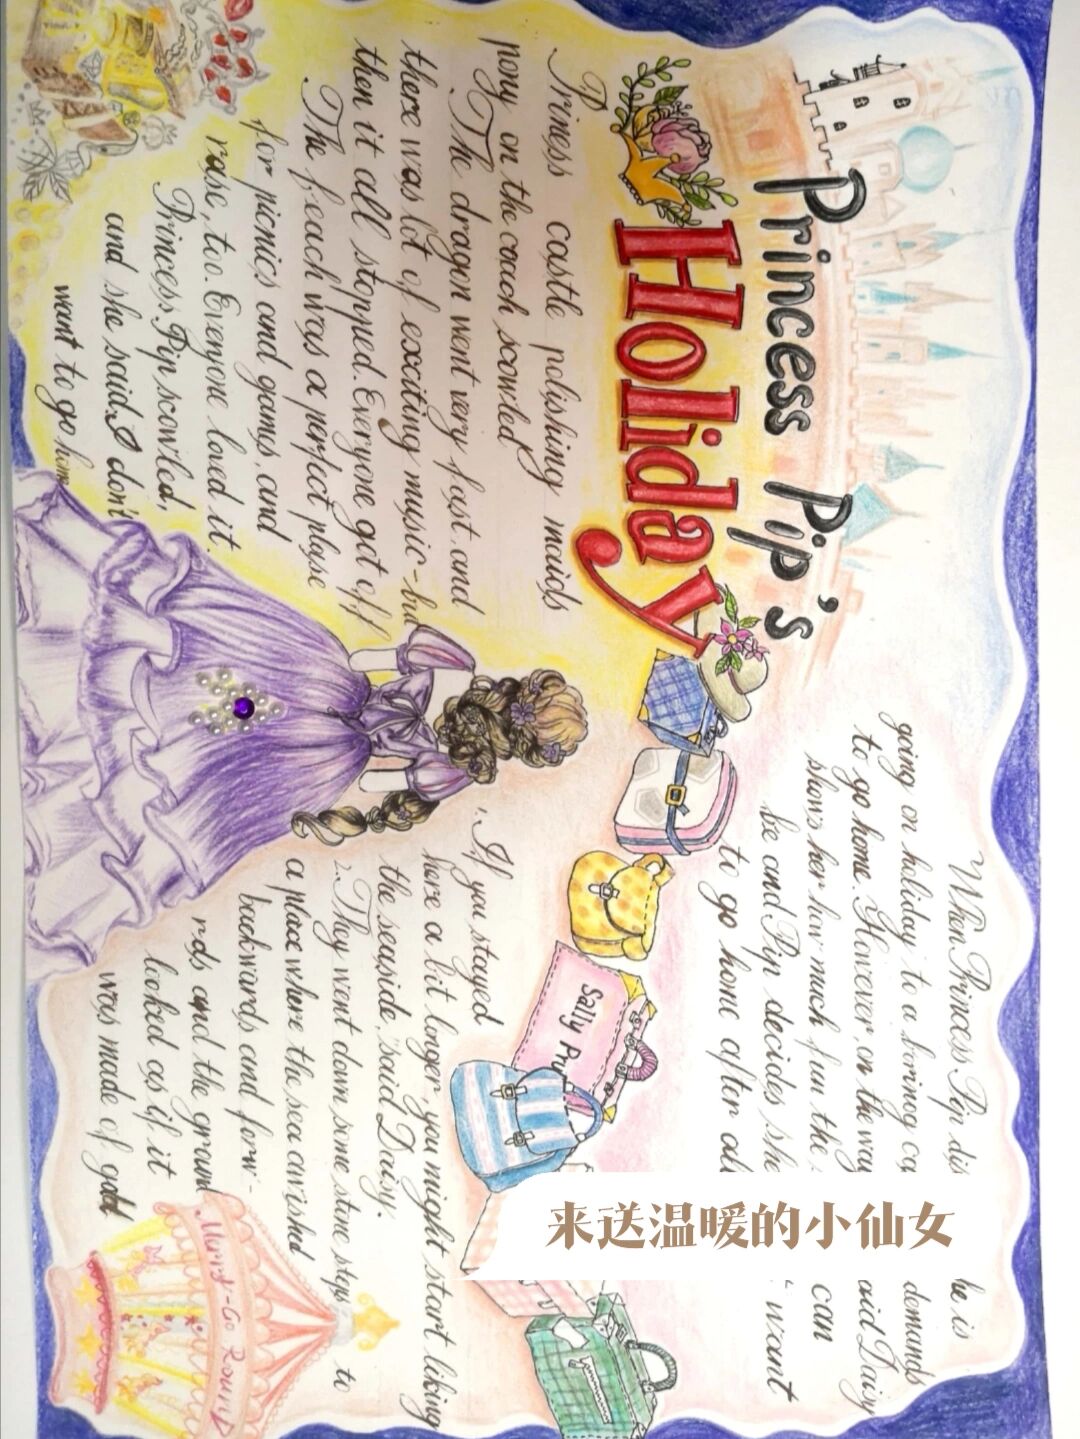 Princess Pip's
Holiday
When Princess Pip dis he is
going on holiday to a borinog ca demands
to go home. However, on the way aid Daisy
shows her how much fun the can
be and Pip decides she t want
to go home after al
Priness castle polishing maids
pony on the coach scowled
.The dragon went very fast and
there was lot of exxiting music - but
then it all stopped. Everyone got off
The beach was a perfect plase
for picnics and gamys, and
rose, too. Everyone loved it.
Princess Pip scowled,
and she said, I don't
want to go home
"If you stayed
here a bit longer, you might start liking
the seaside," said Daisy.
They went down some stone steps to
a place where the sea swished
backwards and forw-
rds and the ground
looked as if it
was made of gold
Sally Pr
Merry-Go Round
来送温暖的小仙女